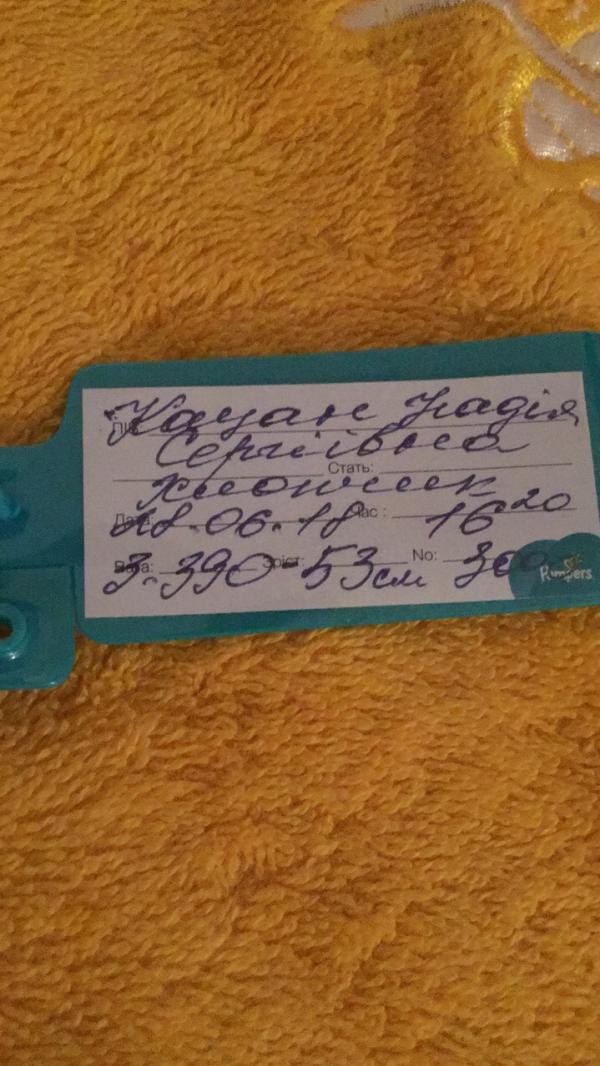 ПІБ: Кацан Надія
Сергіївна
Стать:
хлопчик
Дата: 18.06.18 Час: 16 20
Вага: 3.390 Зріст: 53 см No:
Pampers